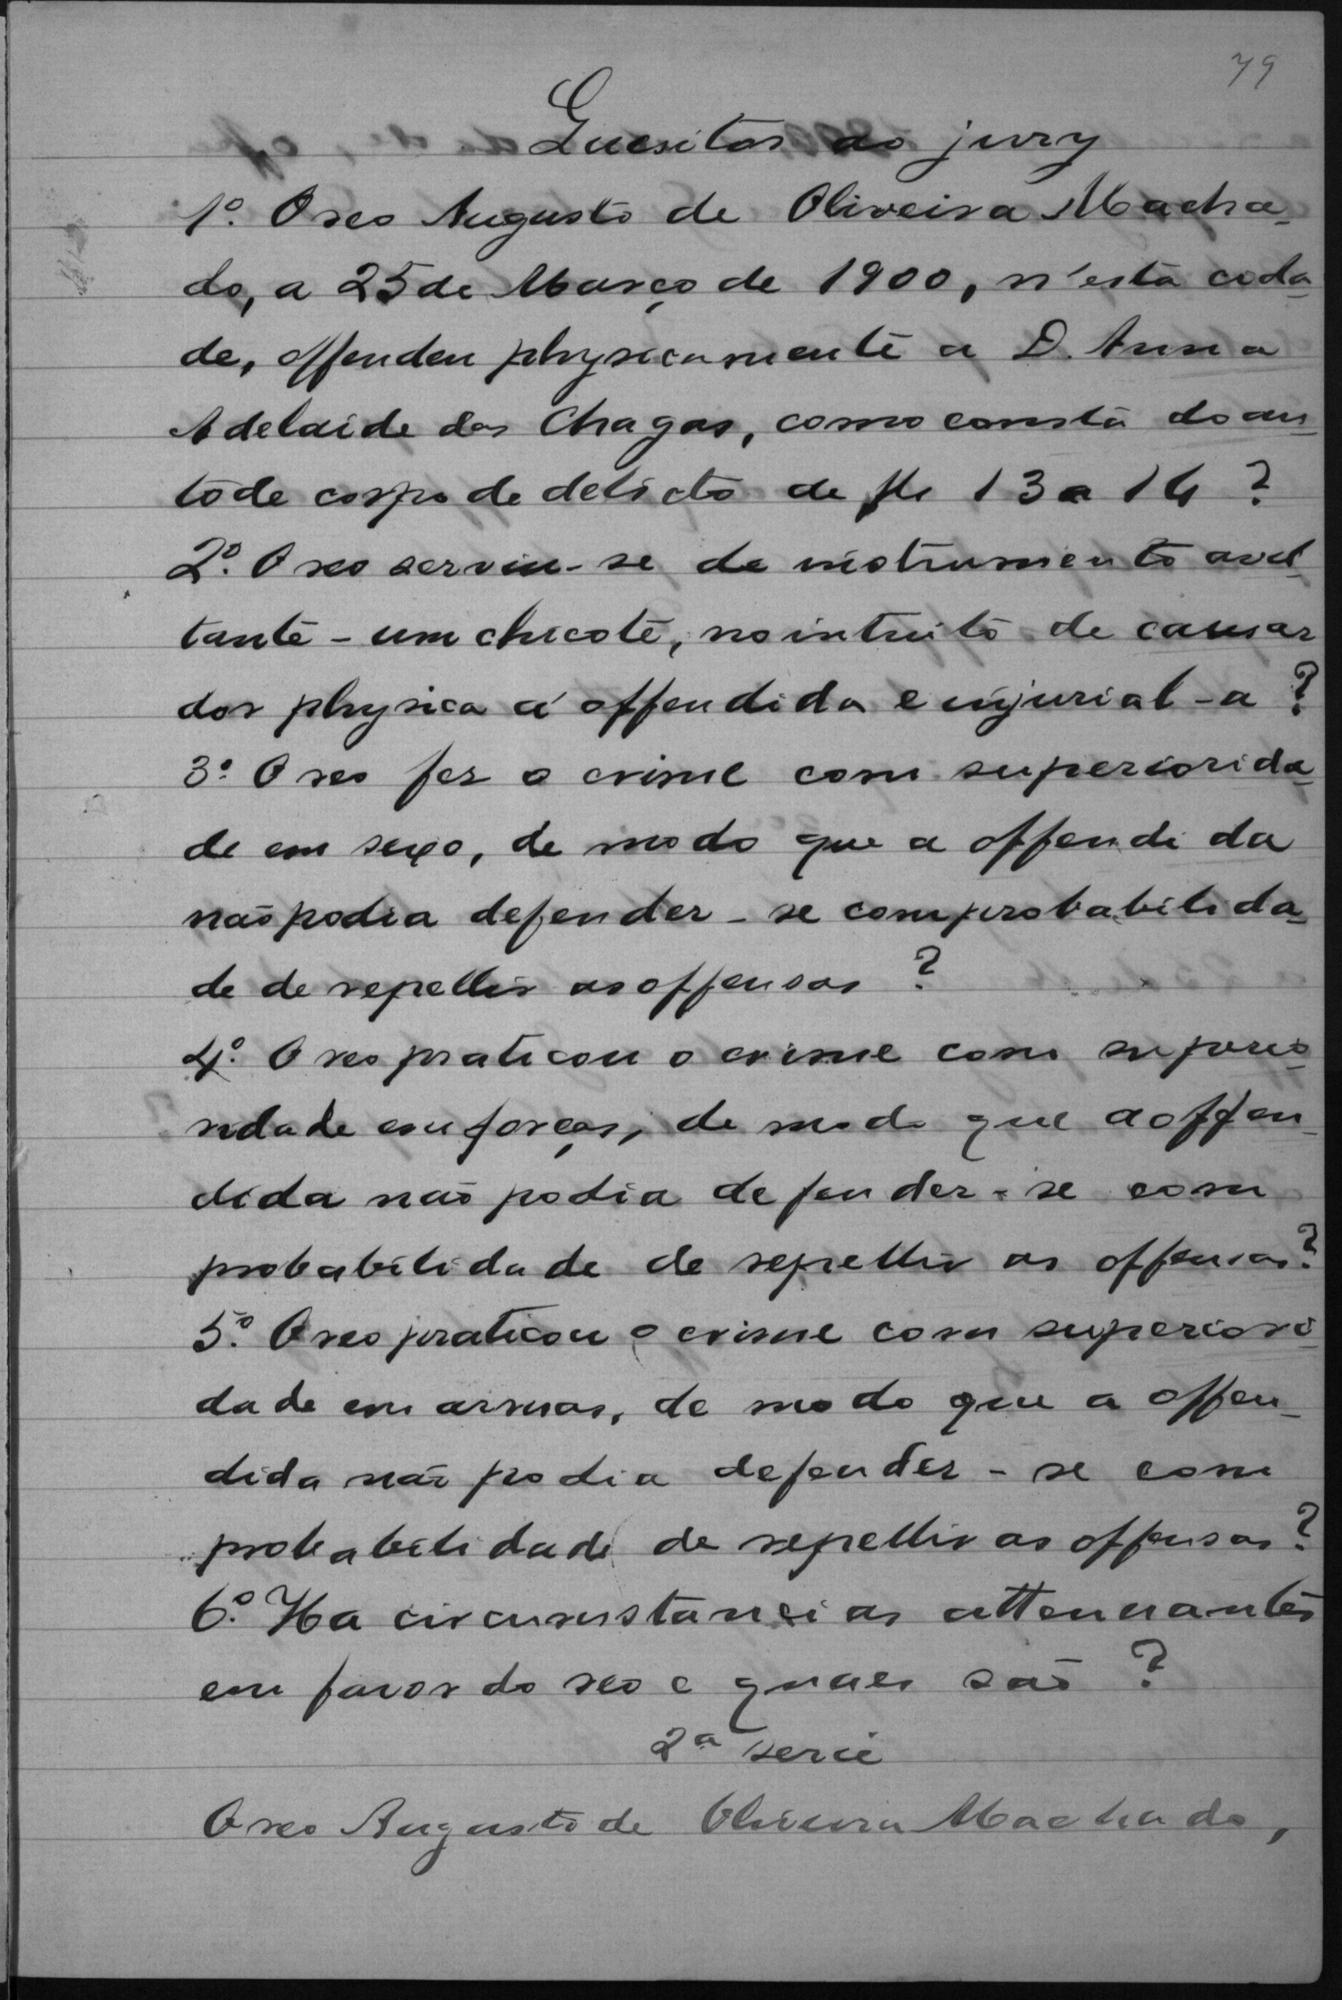 79
Quesitos ao jury
1º. O reo Augusto de Oliveira Macha-
do, a 25 de Março de 1900, n'esta cida-
de, offendeu physicamente a D. Anna
Adelaide das Chagas, como consta do au-
to de corpo de delicto de fls 13 a 14 ?
2º. O reo serviu-se de instrumento avil-
tante - um chicote, no intuito de causar
dor physica á offendida e injurial-a ?
3º. O reo fez o crime com superiorida-
de em sexo, de modo que a offendida
não podia defender-se com probabilida-
de de repellir as offensas ?
4º. O reo praticou o crime com superio-
ridade em forças, de modo que a offen-
dida não podia defender-se com
probabilidade de repellir as offensas ?
5º. O reo praticou o crime com superiori-
dade em armas, de modo que a offen-
dida não podia defender-se com
probabilidade de repellir as offensas ?
6º. Ha circumstancias attenuantes
em favor do reo e quaes são ?
2ª serie
O reo Augusto de Oliveira Machado,